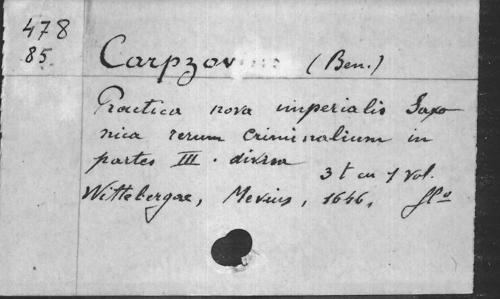 478
85
Carpzov (Ben.)
Practica nova imperialis Saxo
nica rerum criminalium in
partes III. divisa
3 t en 1 vol.
Wittebergae, Mevius, 1646, flo